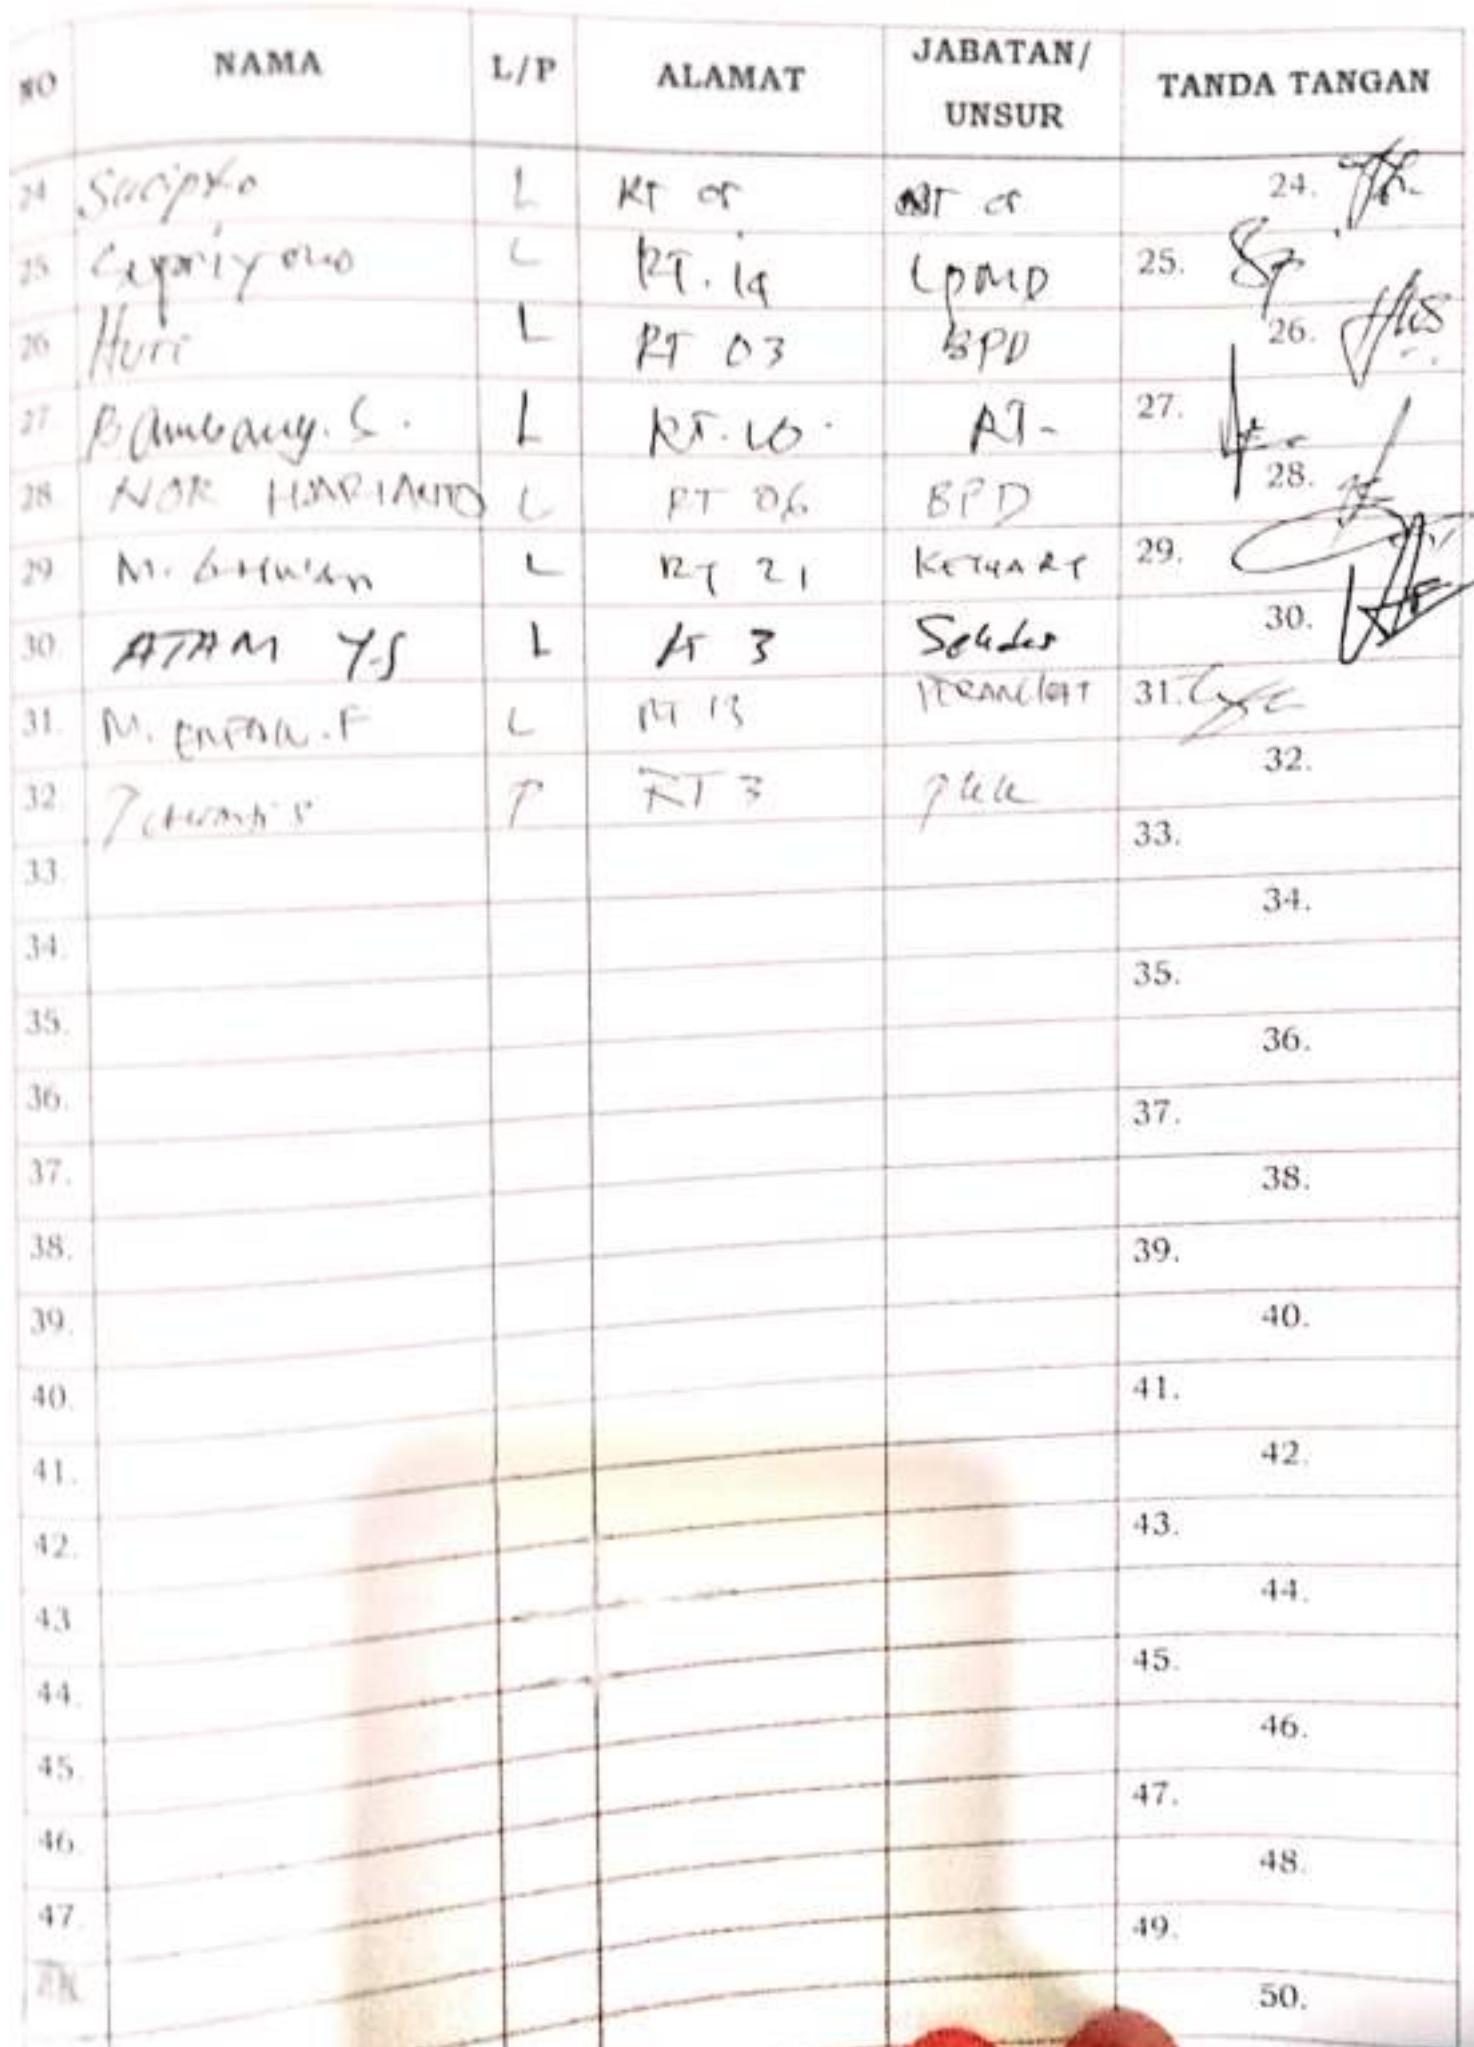 NO NAMA L/P ALAMAT JABATAN/ UNSUR TANDA TANGAN
24 Sucipto L RT RT 24.
25 L RT. LPMD 25.
26 Huri L RT 03 BPD 26.
27 Bambang. S. L RT. 10. RT- 27.
28 NOR HARIANTO L RT 06 BPD 28.
29. M. L RT 21 KETUA RT 29.
30. ATAM Y.S L RT 3 Sekdes 30.
31. M. F L RT 13 PERANGKAT 31.
32 P RT 3 PKK 32.
33. 33.
34. 34.
35. 35.
36. 36.
37. 37.
38. 38.
39. 39.
40. 40.
41. 41.
42. 42.
43 43.
44. 44.
45. 45.
46. 46.
47. 47.
48.
49.
50.